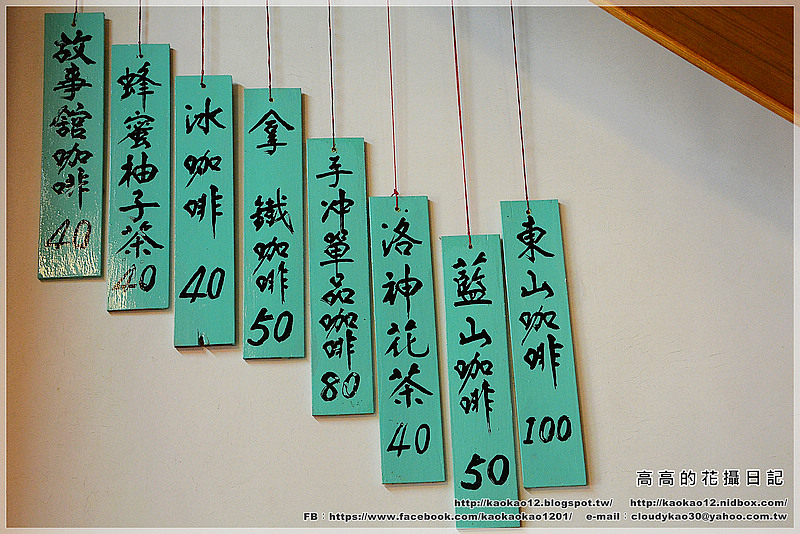 故事舘咖啡 40
蜂蜜柚子茶 40
冰咖啡 40
拿鐵咖啡 50
手冲單品咖啡 80
洛神花茶 40
藍山咖啡 50
東山咖啡 100
高高的花攝日記
http://kaokao12.blogspot.tw/ http://kaokao12.nidbox.com/
FB：https://www.facebook.com/kaokaokao1201/ e-mail：cloudykao30@yahoo.com.tw